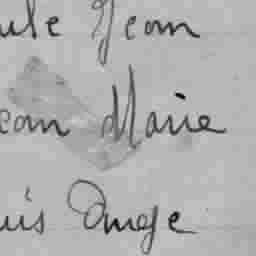 ule Jean
ean Marie
uis Ange